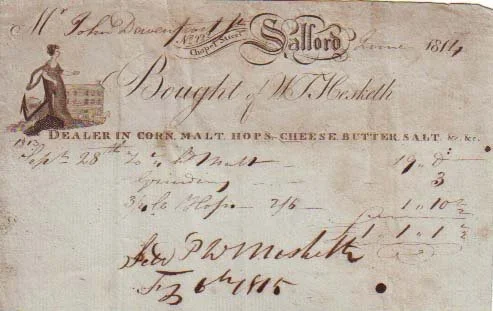 Mr John Davenport
No. 12 Chapel Street Salford June 1814
Bought of W. T. Hesketh
DEALER IN CORN, MALT, HOPS, CHEESE, BUTTER, SALT &c. &c.
1813
Sept 28th To Malt 19 " 0
Grinding 3
3/4 lb Hops 2/6 1 " 10 1/2
1 " 1 " 1 1/2
W Hesketh
6th 1815